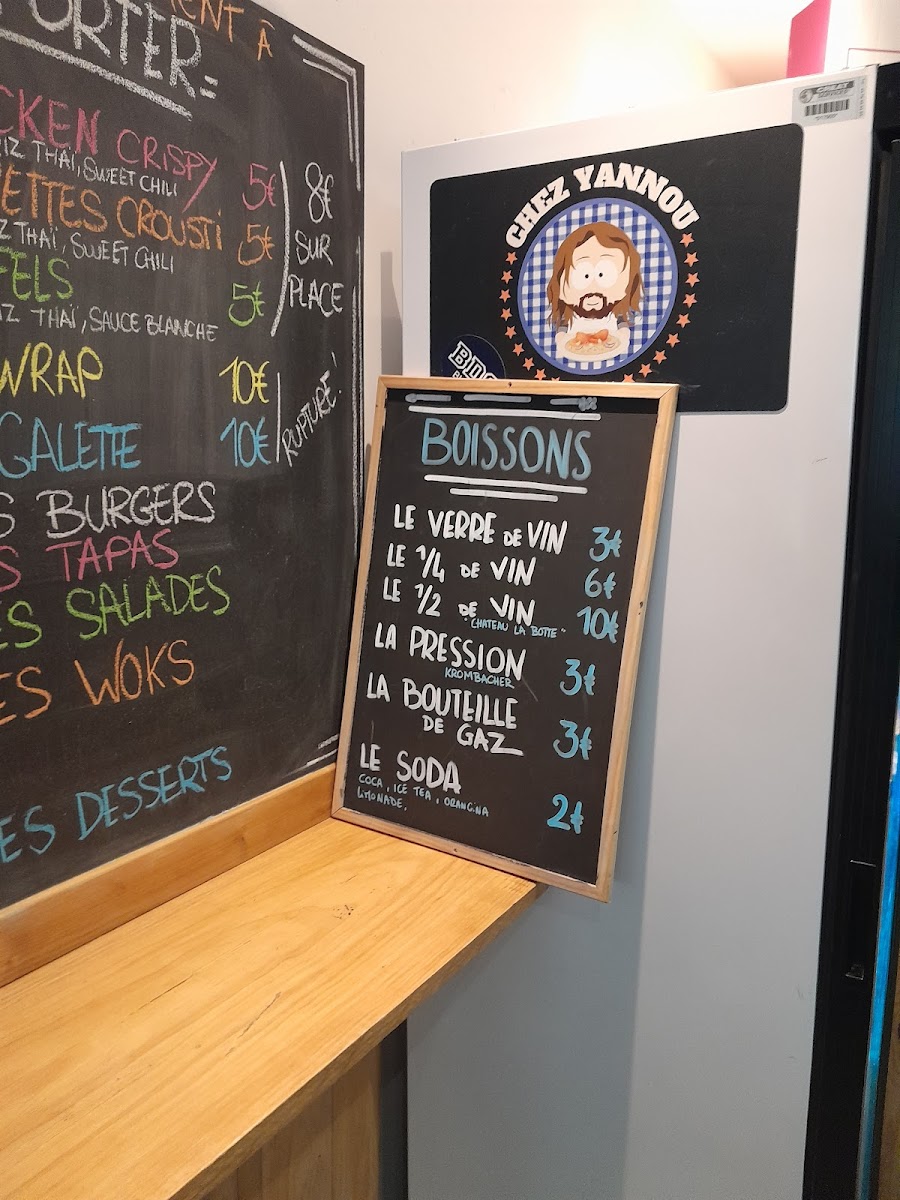 MENT À
PORTER=
CKEN CRISPY 5€
IZ THAÏ, SWEET CHILI
ETTES CROUSTI 5€
Z THAÏ, SWEET CHILI
FELS 5€
IZ THAÏ, SAUCE BLANCHE
8€
SUR
PLACE
WRAP 10€
GALETTE 10€
RUPTURE!
S BURGERS
S TAPAS
ES SALADES
ES WOKS
ES DESSERTS
CHEZ YANNOU
BOISSONS
LE VERRE DE VIN 3€
LE 1/4 DE VIN 6€
LE 1/2 DE VIN 10€
"CHATEAU LA BOTTE"
LA PRESSION 3€
KROMBACHER
LA BOUTEILLE
DE GAZ 3€
LE SODA 2€
COCA, ICE TEA, ORANGINA
LIMONADE.